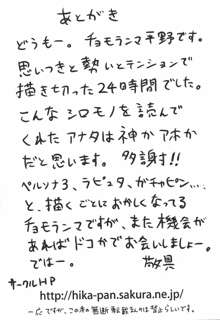 あとがき
どうもー。チョモランマ平野です。
思いつきと勢いとテンションで
描き切った24時間でした。
こんなシロモノを読んで
くれたアナタは神かアホか
だと思います。多謝!!
ペルソナ3、ラピュタ、ガチャピン…
と、描くごとにおかしくなってる
チョモランマですが、また機会が
あればドコかでお会いしましょー。
ではー。 敬具
サークルHP
http://hika-pan.sakura.ne.jp/
一応ですが、この本の無断転載などは禁止らしいです。